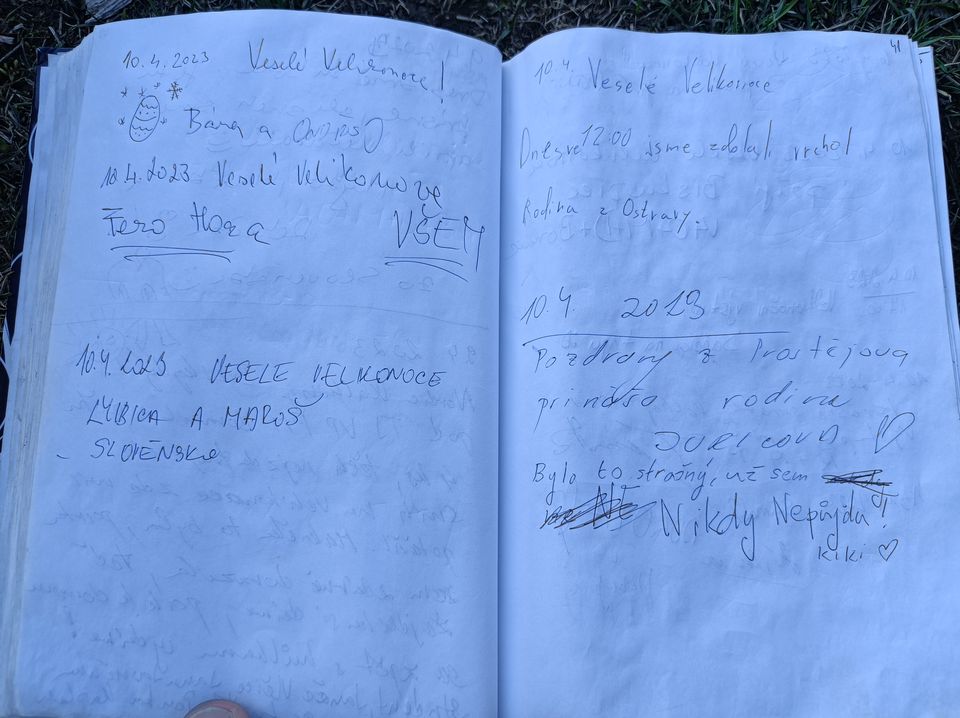 10.4.2023 Veselé Velikonoce!
Bára a Ondřis
10.4.2023 Veselé Velikonoce
Fero Hora VŠEM
10.4.2023 VESELE VELIKONOCE
ĽUBICA A MAROŠ
SLOVĚNSKO
41
10.4. Veselé Velikonoce
Dnes ve 12:00 jsme zdolali vrchol
Rodina z Ostravy.
10.4. 2023
Pozdravy z Prostějova
přináša rodina
JURICOVA
Bylo to strašný, už sem
Nikdy Nepůjdu!
KiKi